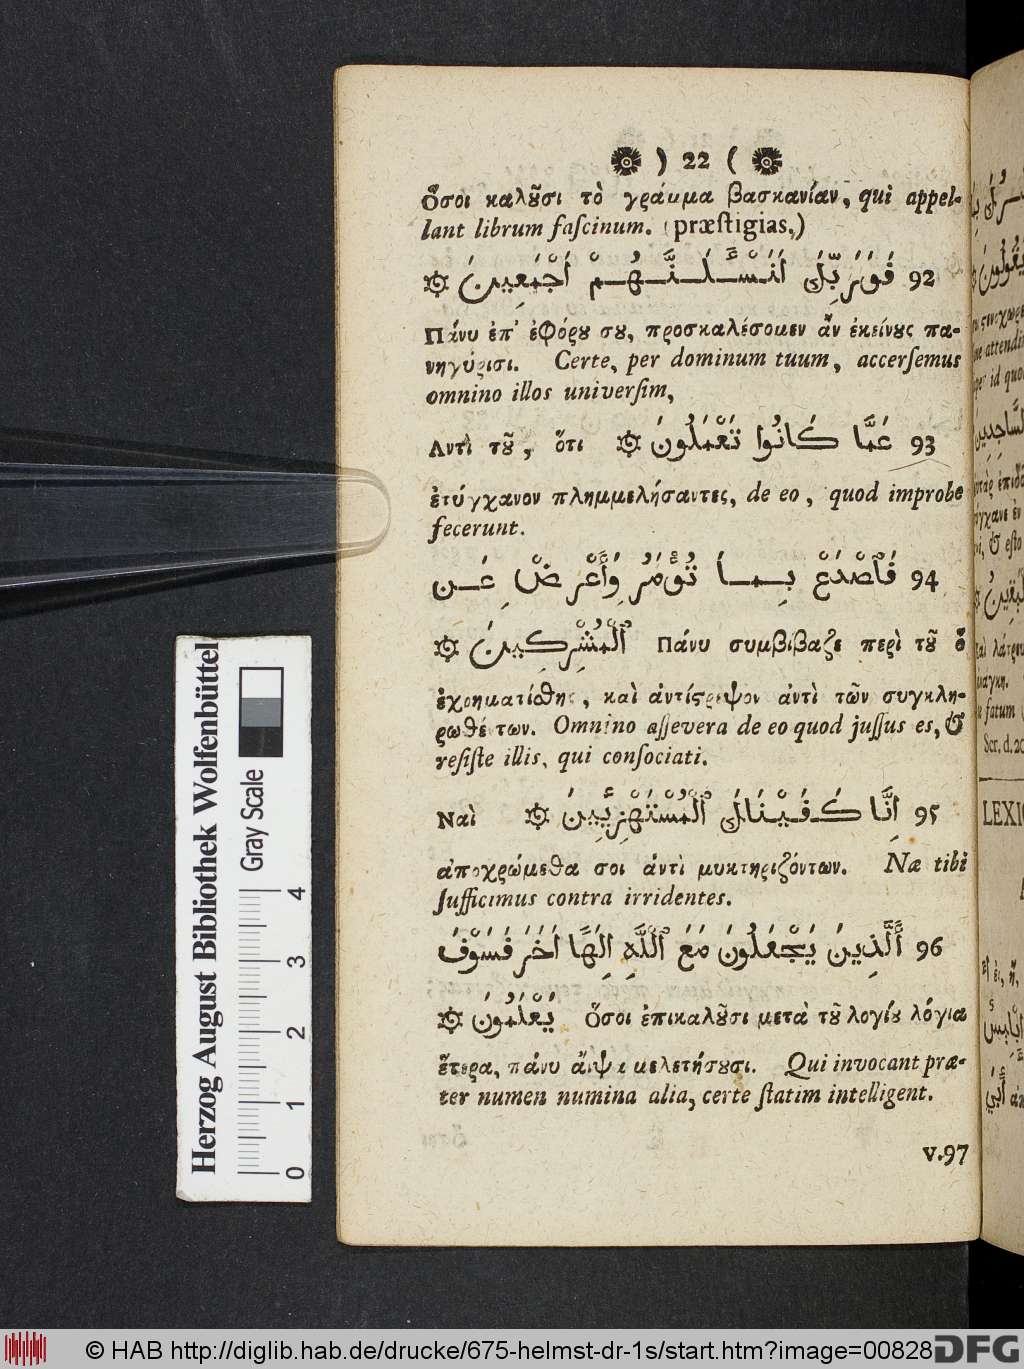 ) 22 (
ὅσοι καλȣ͂σι τὸ γράμμα βασκανίαν, qui appel-
lant librum faſcinum. (præſtigias,)
92 فَوَرَبِّكَ لَنَسْـَٔلَنَّهُمْ أَجْمَعِينَ
Πάνυ ἐπ' ἐφόρȣ σȣ, προσκαλέσομεν ἂν ἐκείνȣς πα-
νηγύρισι. Certe, per dominum tuum, accerſemus
omnino illos univerſim,
93 عَمَّا كَانُوا يَعْمَلُونَ Αντὶ τȣ͂, ὅτι
ἐτύγχανον πλημμελήσαντες, de eo, quod improbe
fecerunt.
94 فَٱصْدَعْ بِمَا تُؤْمَرُ وَأَعْرِضْ عَن
ٱلْمُشْرِكِينَ Πάνυ συμβίβαζε περὶ τȣ͂ ὃ
ἐχρηματίσθης, καὶ ἀντίςρεψον ἀντὶ τῶν συγκλη-
ρωθέντων. Omnino aſſevera de eo quod juſſus es, &
reſiſte illis, qui conſociati.
95 إِنَّا كَفَيْنَاكَ ٱلْمُسْتَهْزِئِينَ Ναὶ
ἀποχρώμεθα σοι ἀντὶ μυκτηριζόντων. Næ tibi
ſufficimus contra irridentes.
96 ٱلَّذِينَ يَجْعَلُونَ مَعَ ٱللَّهِ إِلَهًا أَخَرَ فَسَوْفَ
يَعْلَمُونَ Ὅσοι ἐπικαλȣ͂σι μετὰ τȣ͂ λογίȣ λόγια
ἕτερα, πάνυ ἄιψα μελετήσȣσι. Qui invocant præ-
ter numen numina alia, certe ſtatim intelligent.
v.97
LEXI
Scr. d. 20
Herzog August Bibliothek Wolfenbüttel
Gray Scale
0 1 2 3 4
© HAB http://diglib.hab.de/drucke/675-helmst-dr-1s/start.htm?image=00828
DFG